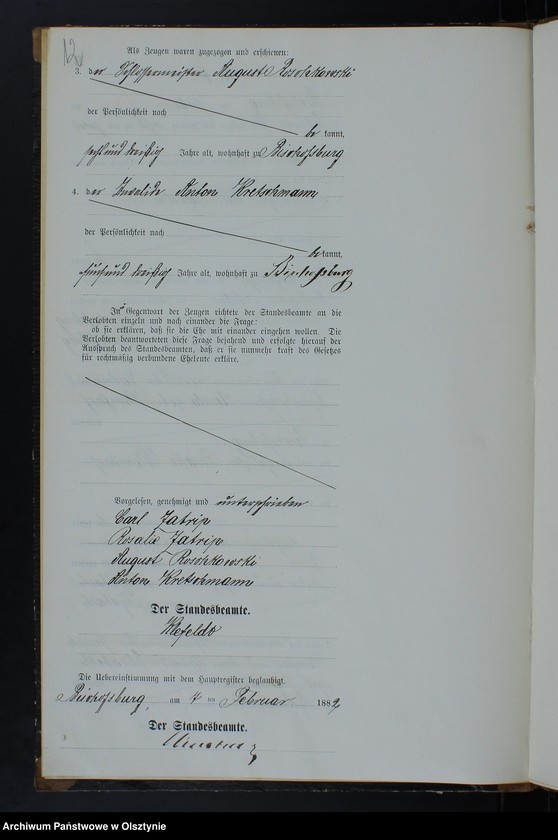 12
Als Zeugen waren zugezogen und erschienen:
3. der Schlossermeister August Roschkowski
der Persönlichkeit nach
be kannt,
sechsunddreißig Jahre alt, wohnhaft zu Bischofsburg
4. der Invalide Anton Kretschmann
der Persönlichkeit nach
be kannt,
fünfunddreißig Jahre alt, wohnhaft zu Bischofsburg
In Gegenwart der Zeugen richtete der Standesbeamte an die
Verlobten einzeln und nach einander die Frage:
ob sie erklären, daß sie die Ehe mit einander eingehen wollen. Die
Verlobten beantworteten diese Frage bejahend und erfolgte hierauf der
Ausspruch des Standesbeamten, daß er sie nunmehr kraft des Gesetzes
für rechtmäßig verbundene Eheleute erkläre.
Vorgelesen, genehmigt und unterschrieben
Carl Zatrip
Rosalie Zatrip
August Roschkowski
Anton Kretschmann
Der Standesbeamte.
Klefeldt
Die Uebereinstimmung mit dem Hauptregister beglaubigt.
Bischofsburg, am 7 ten Februar 1882
Der Standesbeamte.
Archiwum Państwowe w Olsztynie